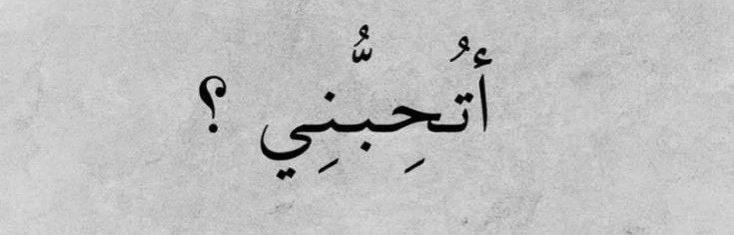 أتُحِبُّنِي ؟